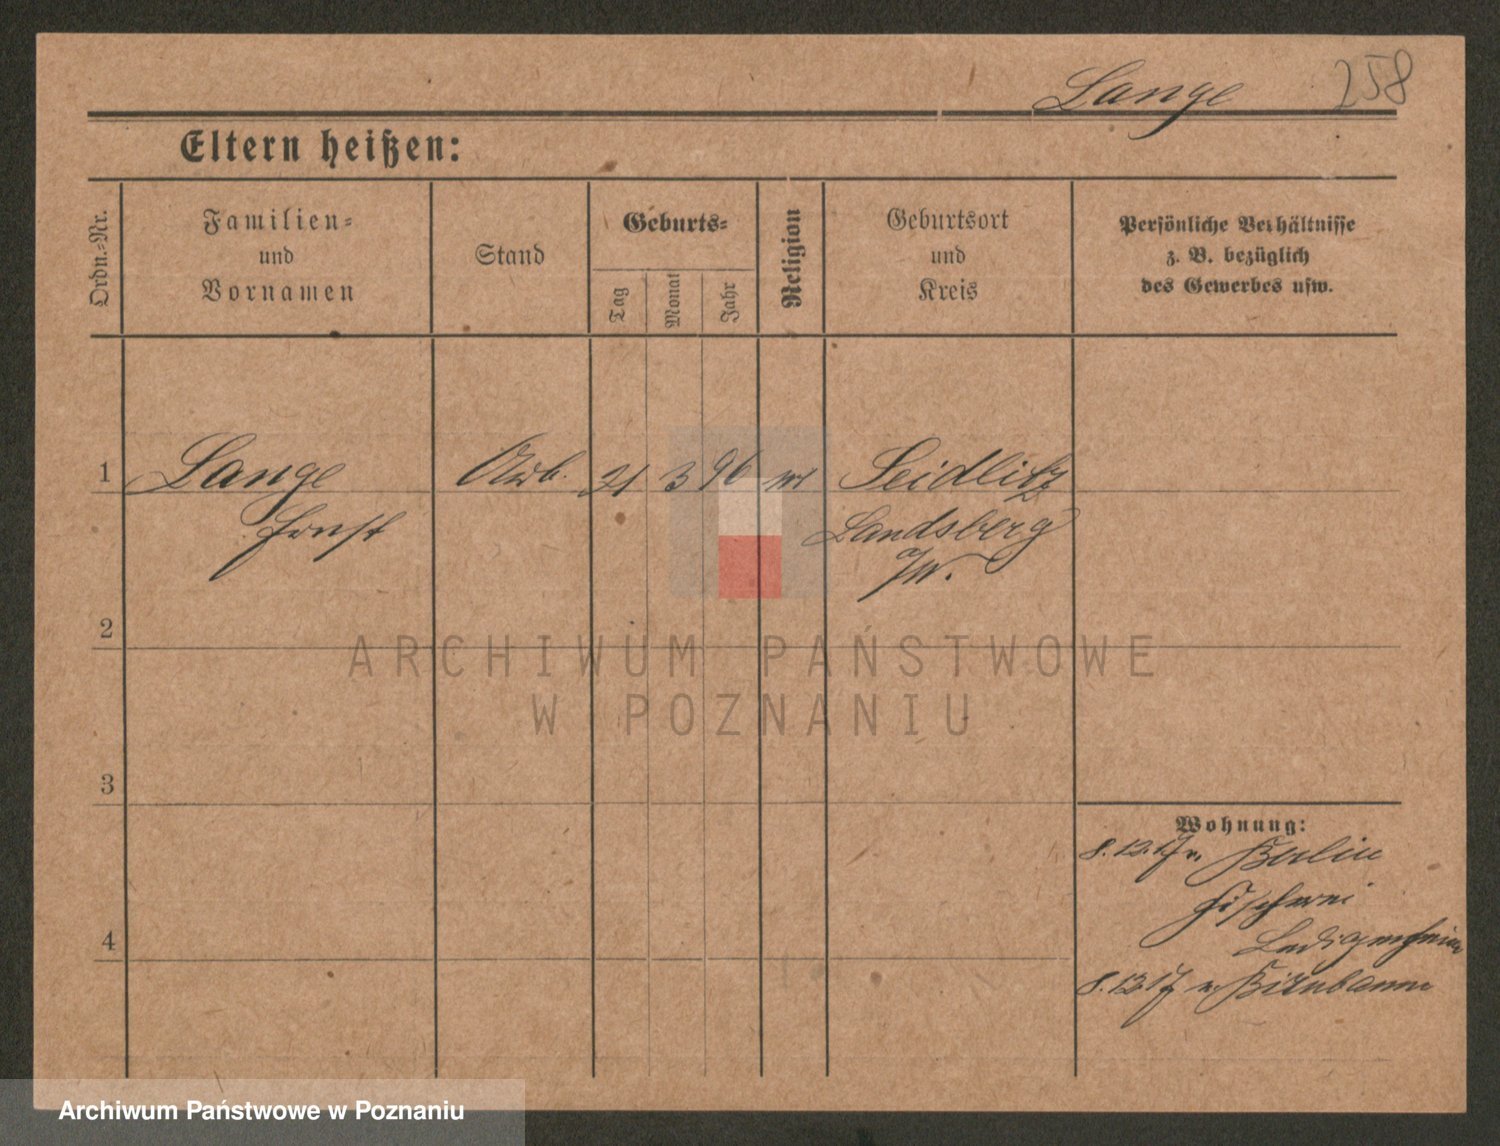 Lange 258
Eltern heißen:
Ordn.-Nr.
Familien-
und
Vornamen
Stand
Geburts-
Tag
Monat
Jahr
Religion
Geburtsort
und
Kreis
Persönliche Verhältnisse
z. B. bezüglich
des Gewerbes usw.
1 Lange Arb. 21 3 96 Seidlitz
Ernst Landsberg
a/W.
2
3
4
Wohnung:
8.12.17 v. Berlin
Ledigenheim
8.12.17 n. Birnbaum
ARCHIWUM PAŃSTWOWE
W POZNANIU
Archiwum Państwowe w Poznaniu